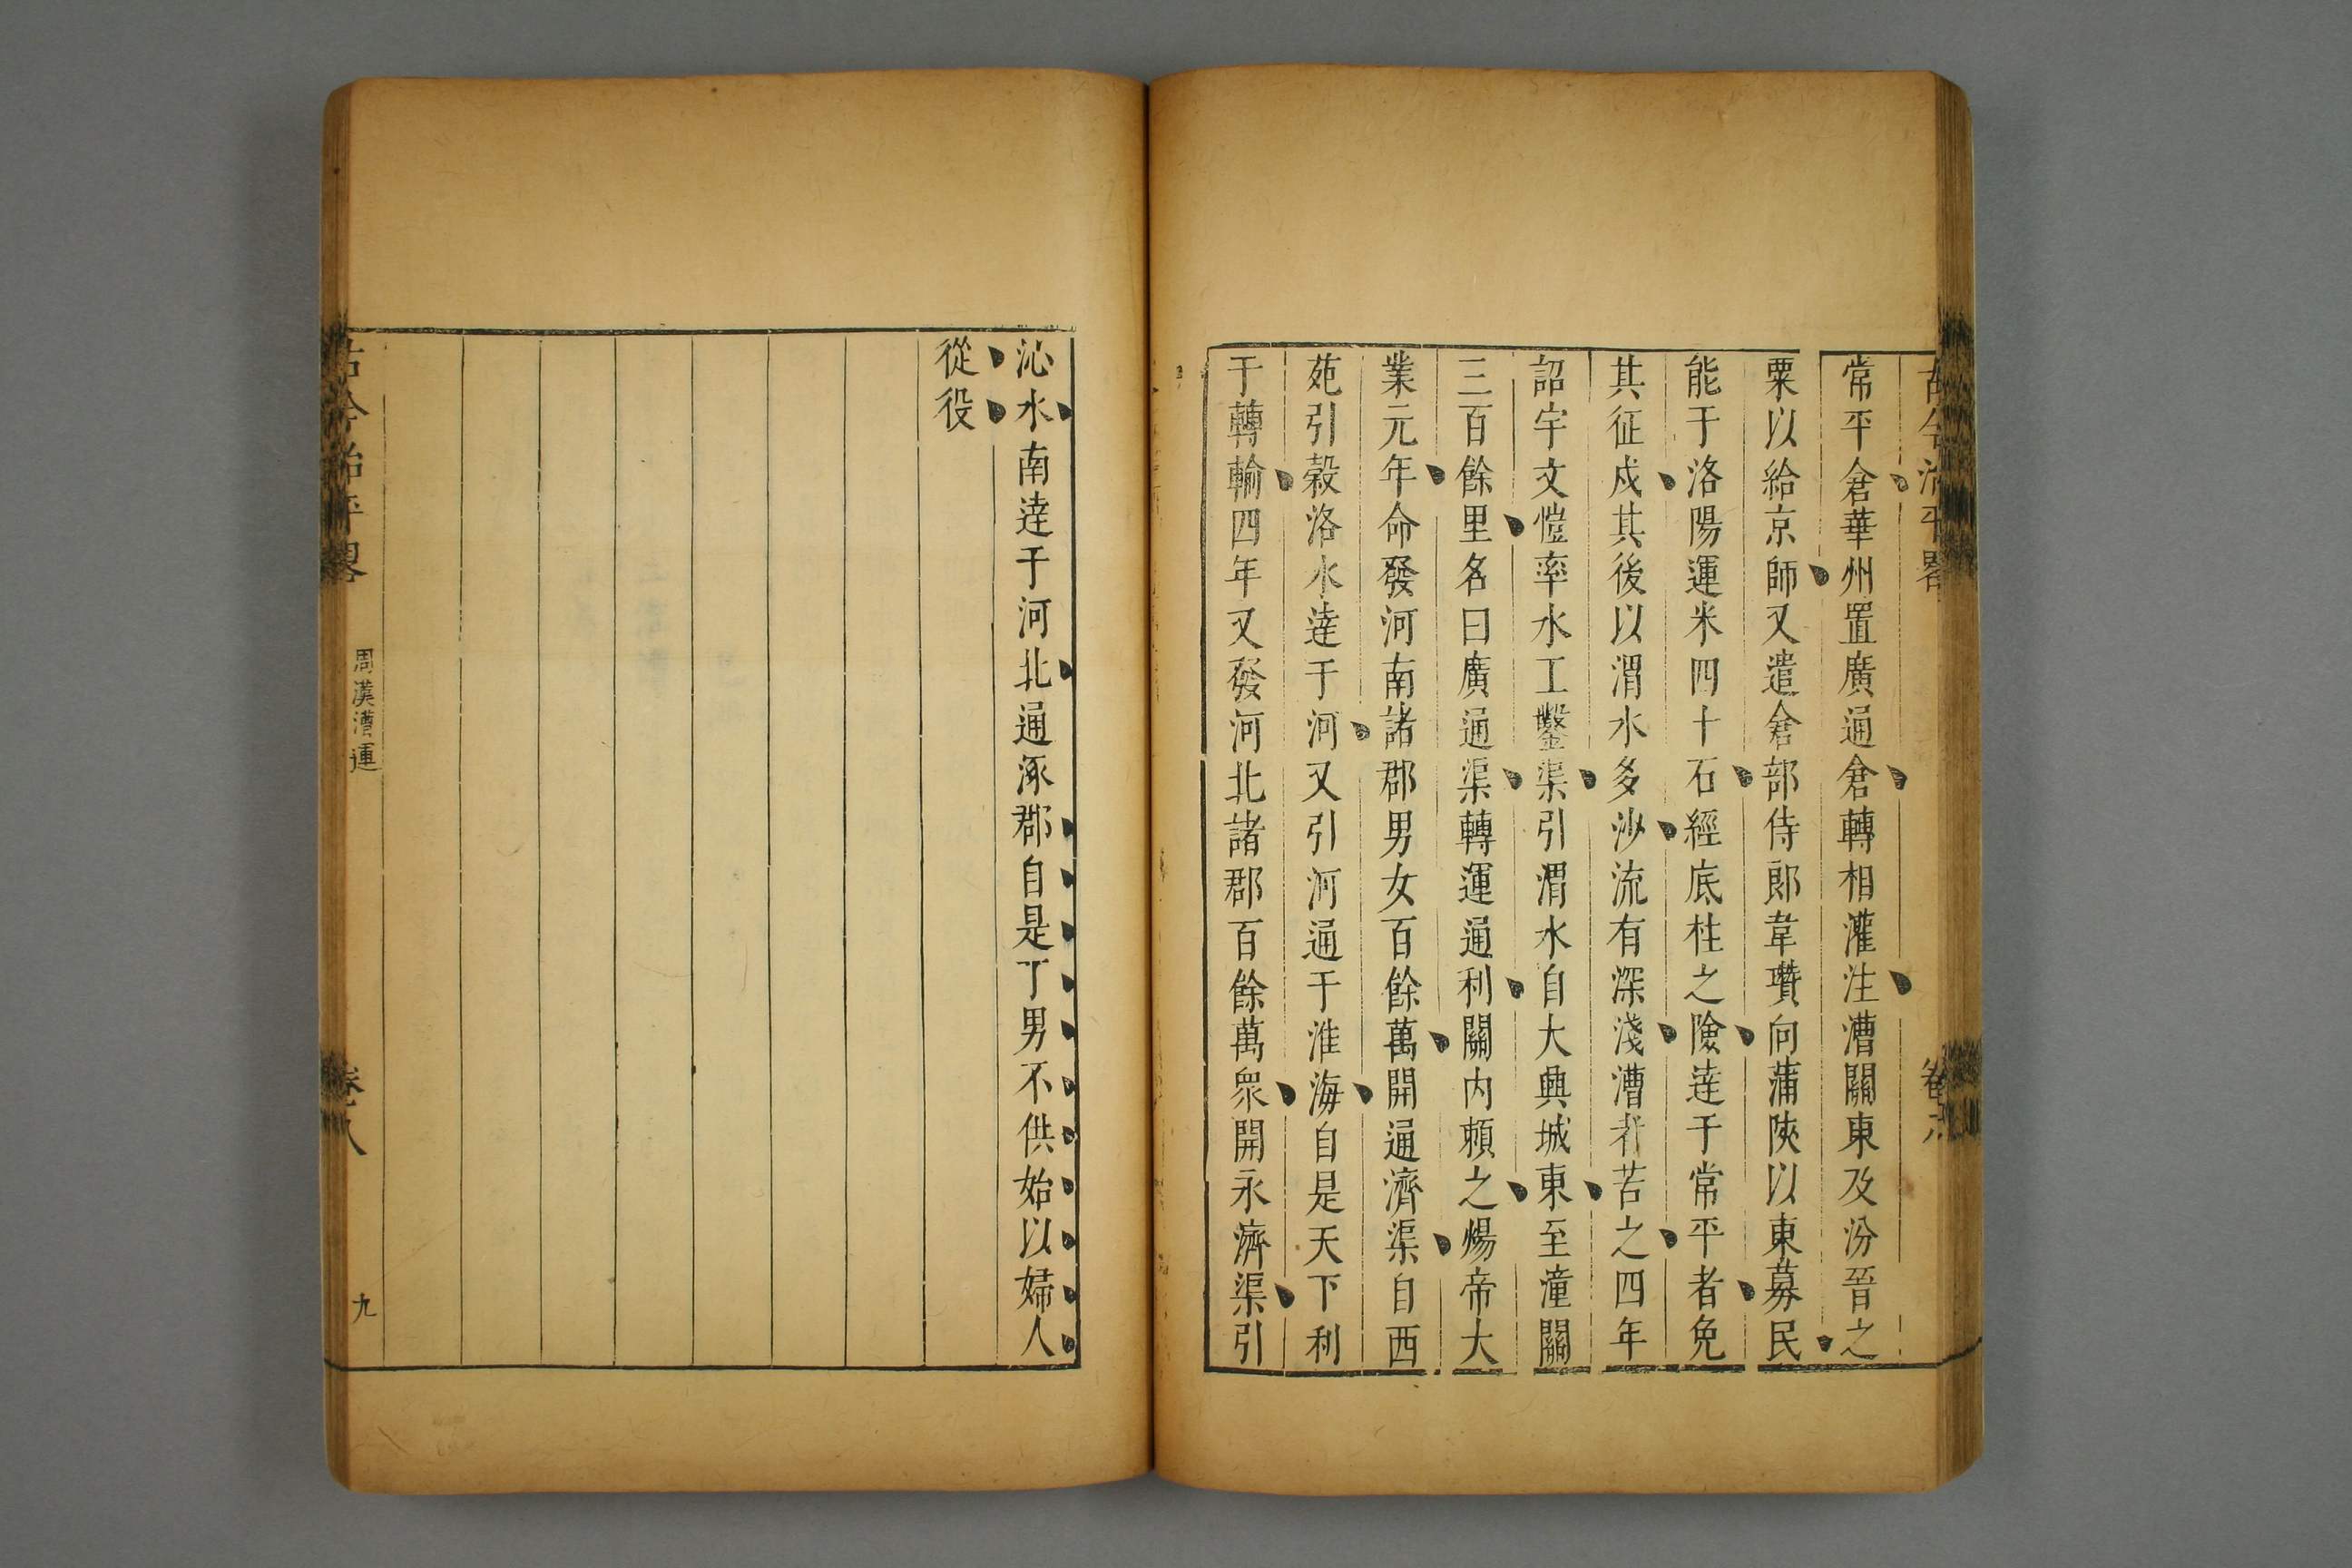 常平倉華州置廣通倉轉相灌注漕關東及汾晉之
粟以給京師又遣倉部侍郎韋瓚向蒲陝以東募民
能于洛陽運米四十石經底柱之險達于常平者免
其征戍其後以渭水多沙流有深淺漕者苦之四年
詔宇文愷率水工鑿渠引渭水自大興城東至潼關
三百餘里名曰廣通渠轉運通利關内賴之煬帝大
業元年命發河南諸郡男女百餘萬開通濟渠自西
苑引榖洛水達于河又引河通于淮海自是天下利
于轉輸四年又發河北諸郡百餘萬眾開永濟渠引
沁水南達于河北通涿郡自是丁男不供始以婦人
從役
古今治平畧
周漢漕運
卷八
九